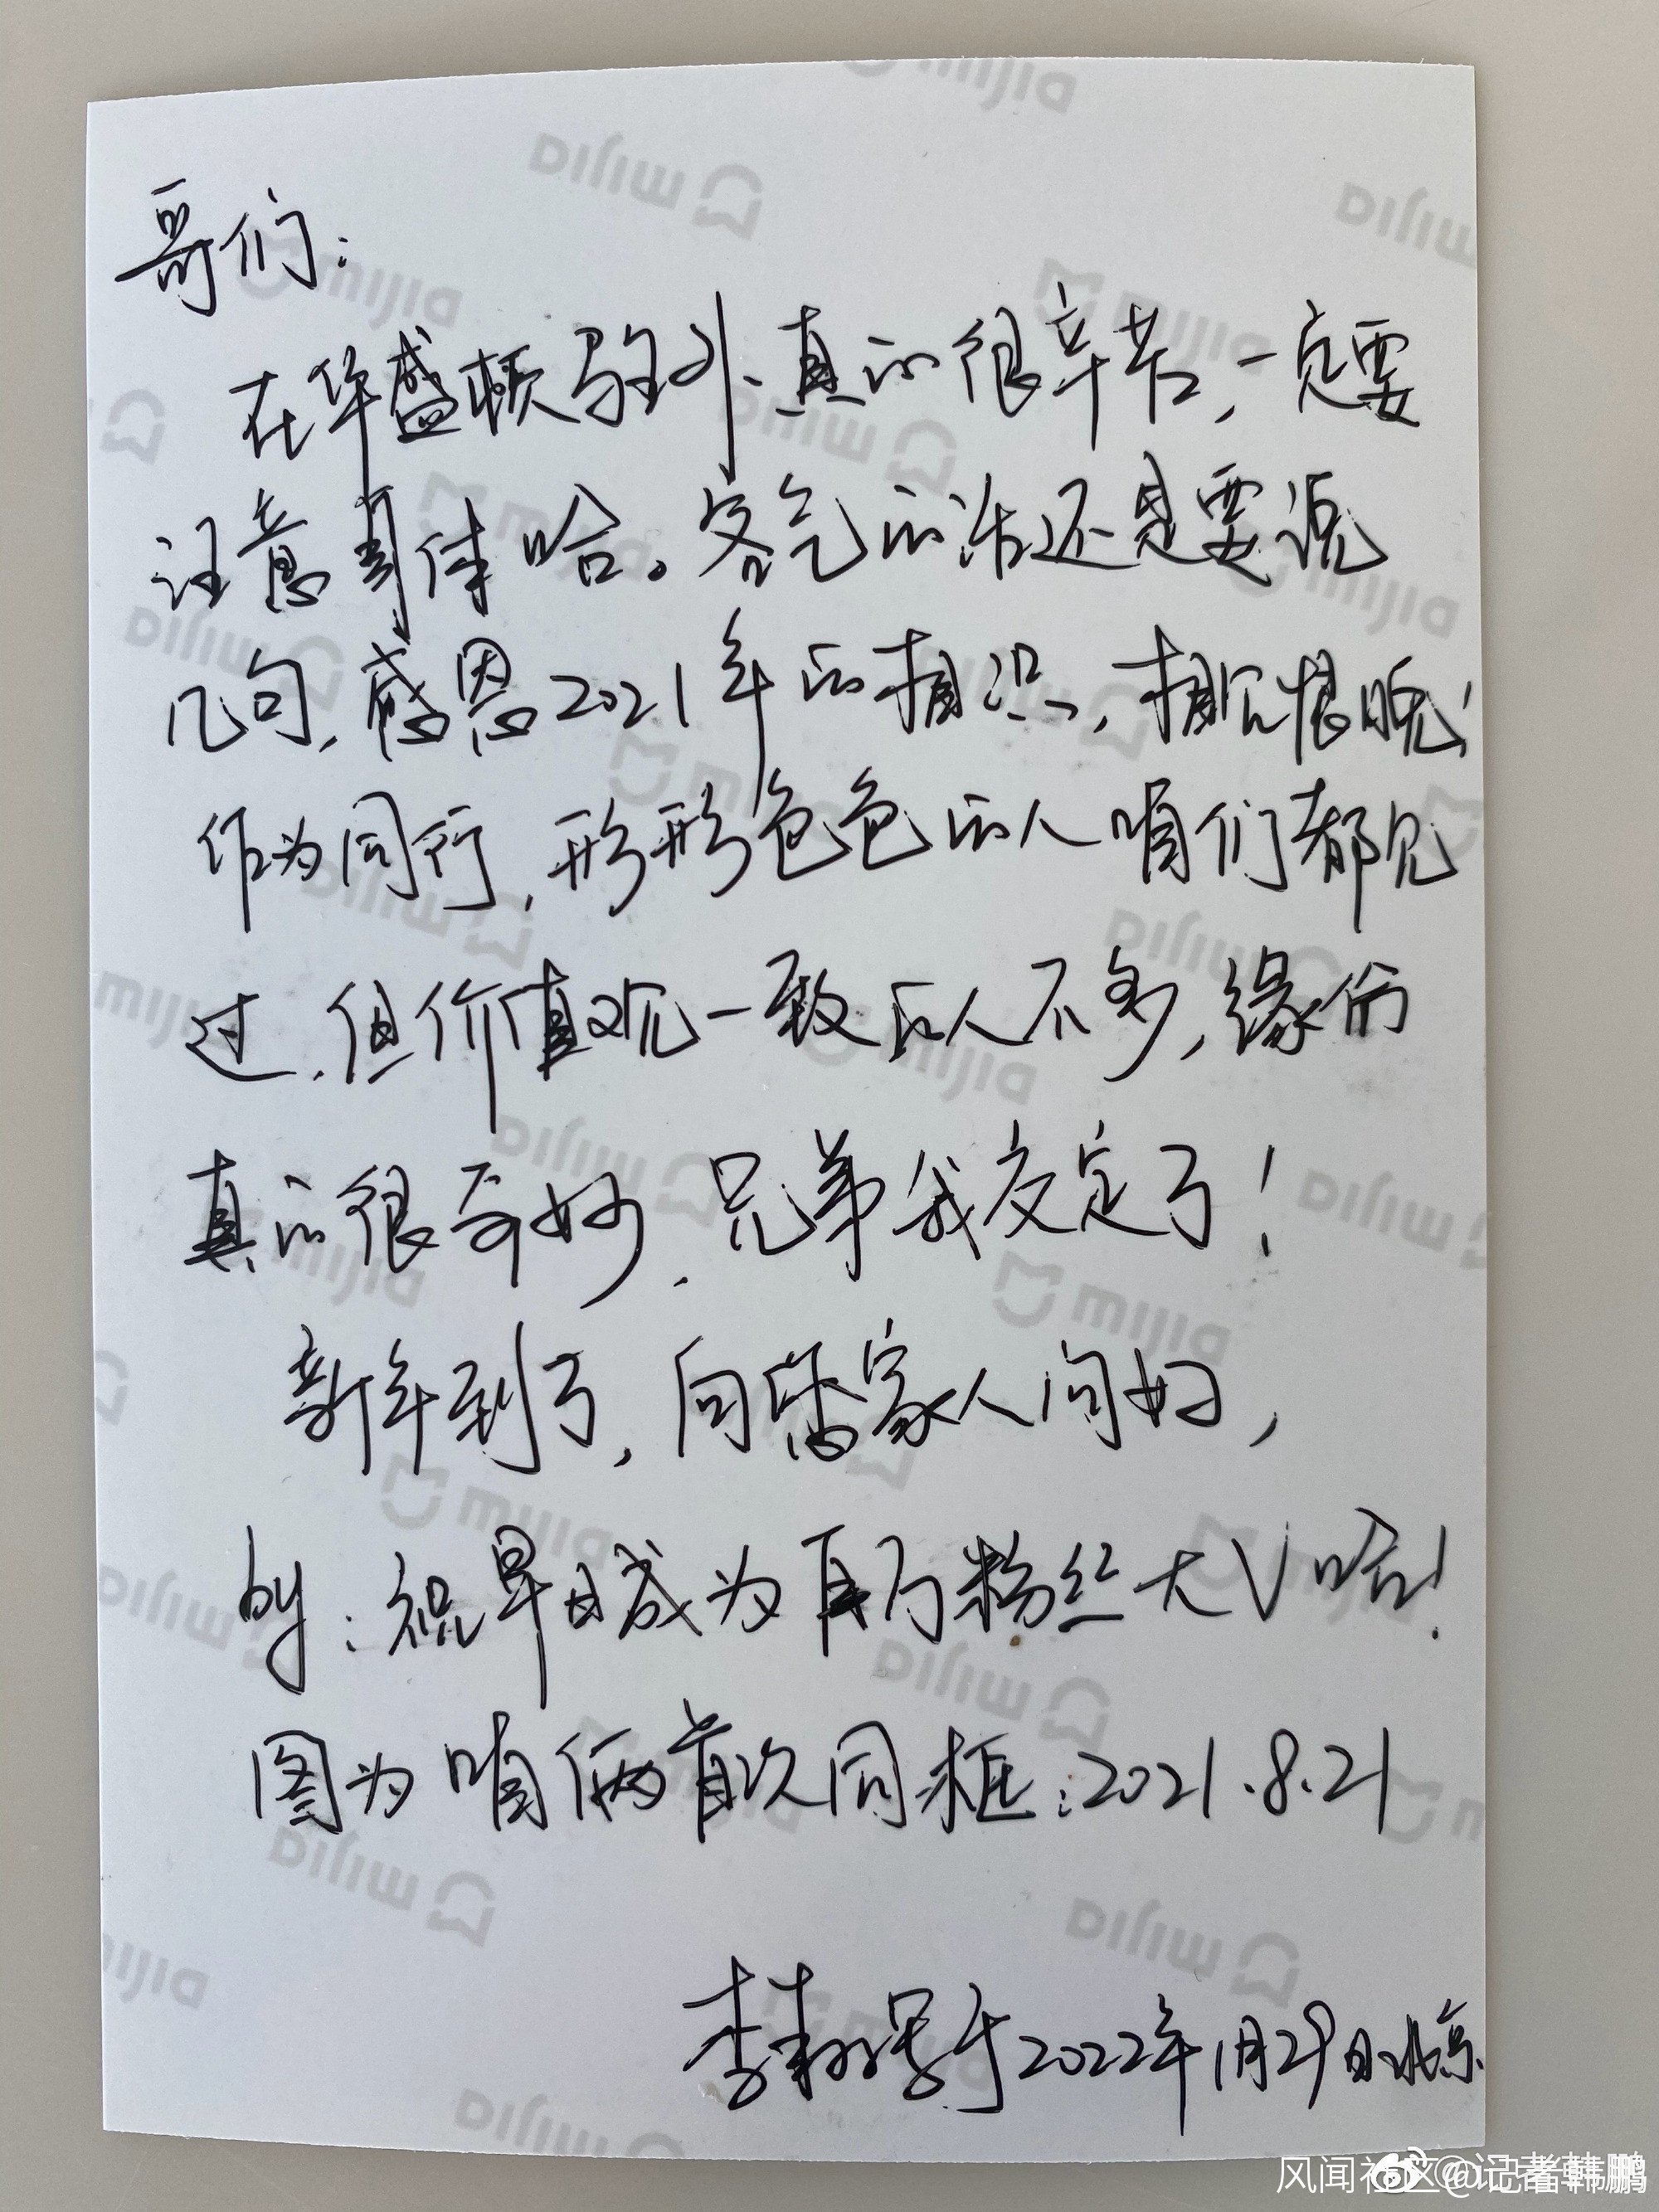 哥们：
在华盛顿驻外真的很辛苦，一定要
注意身体哈。客气的话还是要说
几句，感恩2021年的相识，相见恨晚！
作为同行，形形色色的人咱们都见
过，但价值观一致的人不多，缘份
真的很奇妙，兄弟我交定了！
新年到了，向家人问好，
by：祝早日成为百万粉丝大V哈！
图为咱俩首次同框：2021.8.21
李于2022年1月29日北京
mijia
风闻社区 @记者韩鹏